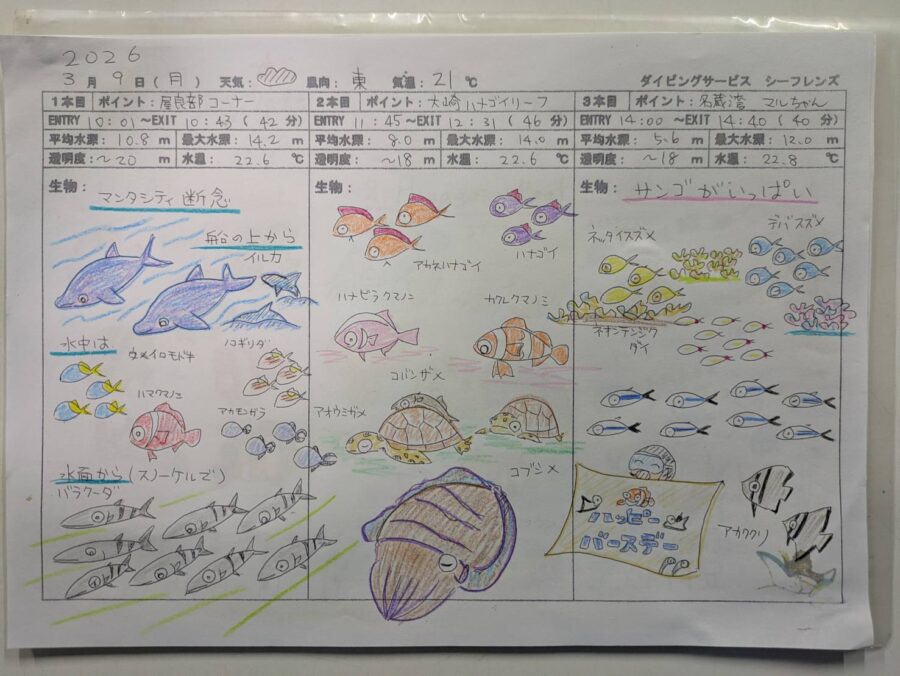 2026
3月9日(月) 天気: 風向: 東 気温: 21℃ ダイビングサービス シーフレンズ
1本目 ポイント: 屋良部コーナー
ENTRY 10:01 ~EXIT 10:43 (42分)
平均水深: 10.8 m 最大水深: 14.2 m
透明度: ~20 m 水温: 22.6 ℃
生物:
マンタシティ断念
船の上から
イルカ
水中は
ウメイロモドキ
ノコギリダイ
ハマクマノミ
アカモンガラ
水面から(スノーケルで)
バラクーダ
2本目 ポイント: 大崎ハナゴイリーフ
ENTRY 11:45 ~EXIT 12:31 (46分)
平均水深: 8.0 m 最大水深: 14.0 m
透明度: ~18 m 水温: 22.6 ℃
生物:
アカネハナゴイ
ハナゴイ
ハナビラクマノミ
カクレクマノミ
コバンザメ
アオウミガメ
コブシメ
3本目 ポイント: 名蔵湾 マルちゃん
ENTRY 14:00 ~EXIT 14:40 (40分)
平均水深: 5.6 m 最大水深: 12.0 m
透明度: ~18 m 水温: 22.8 ℃
生物: サンゴがいっぱい
ネッタイスズメ
デバスズメ
ネオンテンジク
ダイ
ハッピー
バースデー
アカククリ